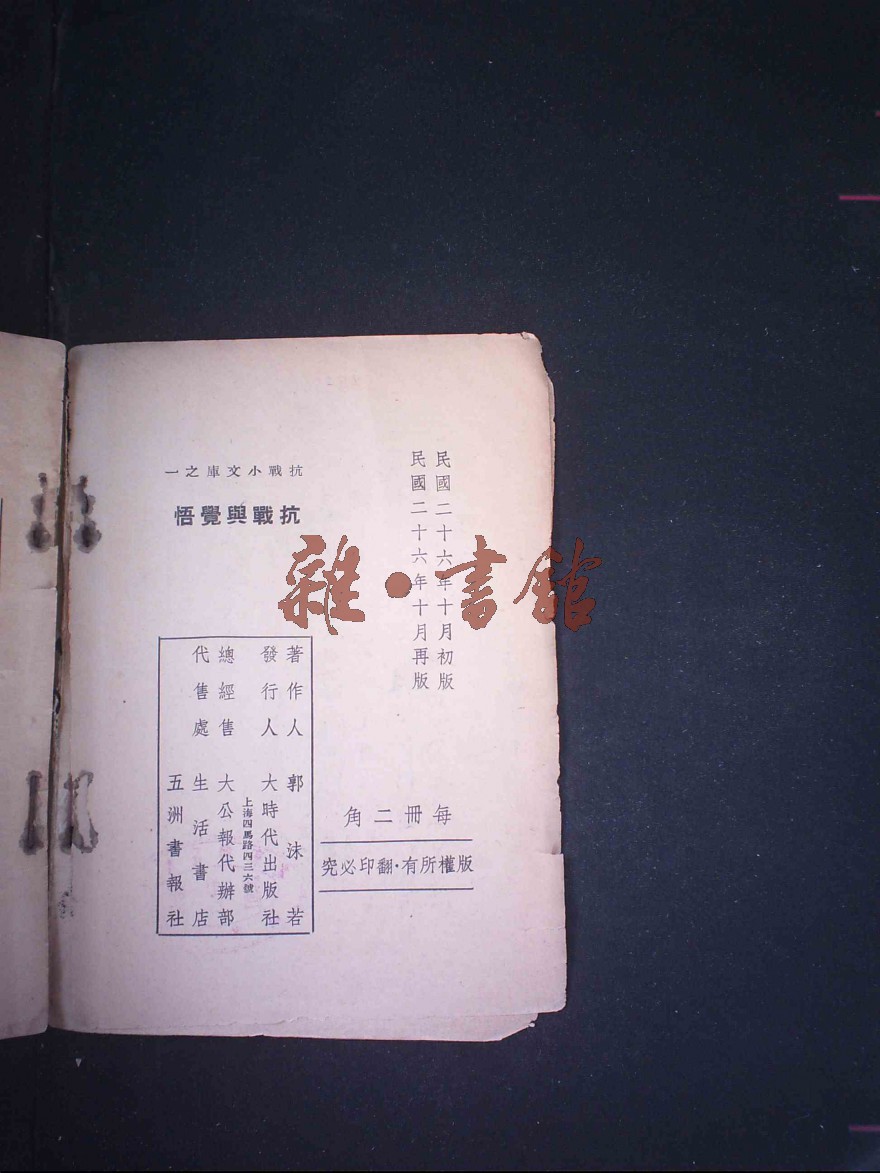 民國二十六年十月初版
民國二十六年十月再版
抗戰小文庫之一
抗戰與覺悟
雜·書館
每冊二角
版權所有·翻印必究
著作人 郭沫若
發行人 大時代出版社
上海四馬路四三六號
總經售 大公報代辦部
代售處 生活書店
五洲書報社